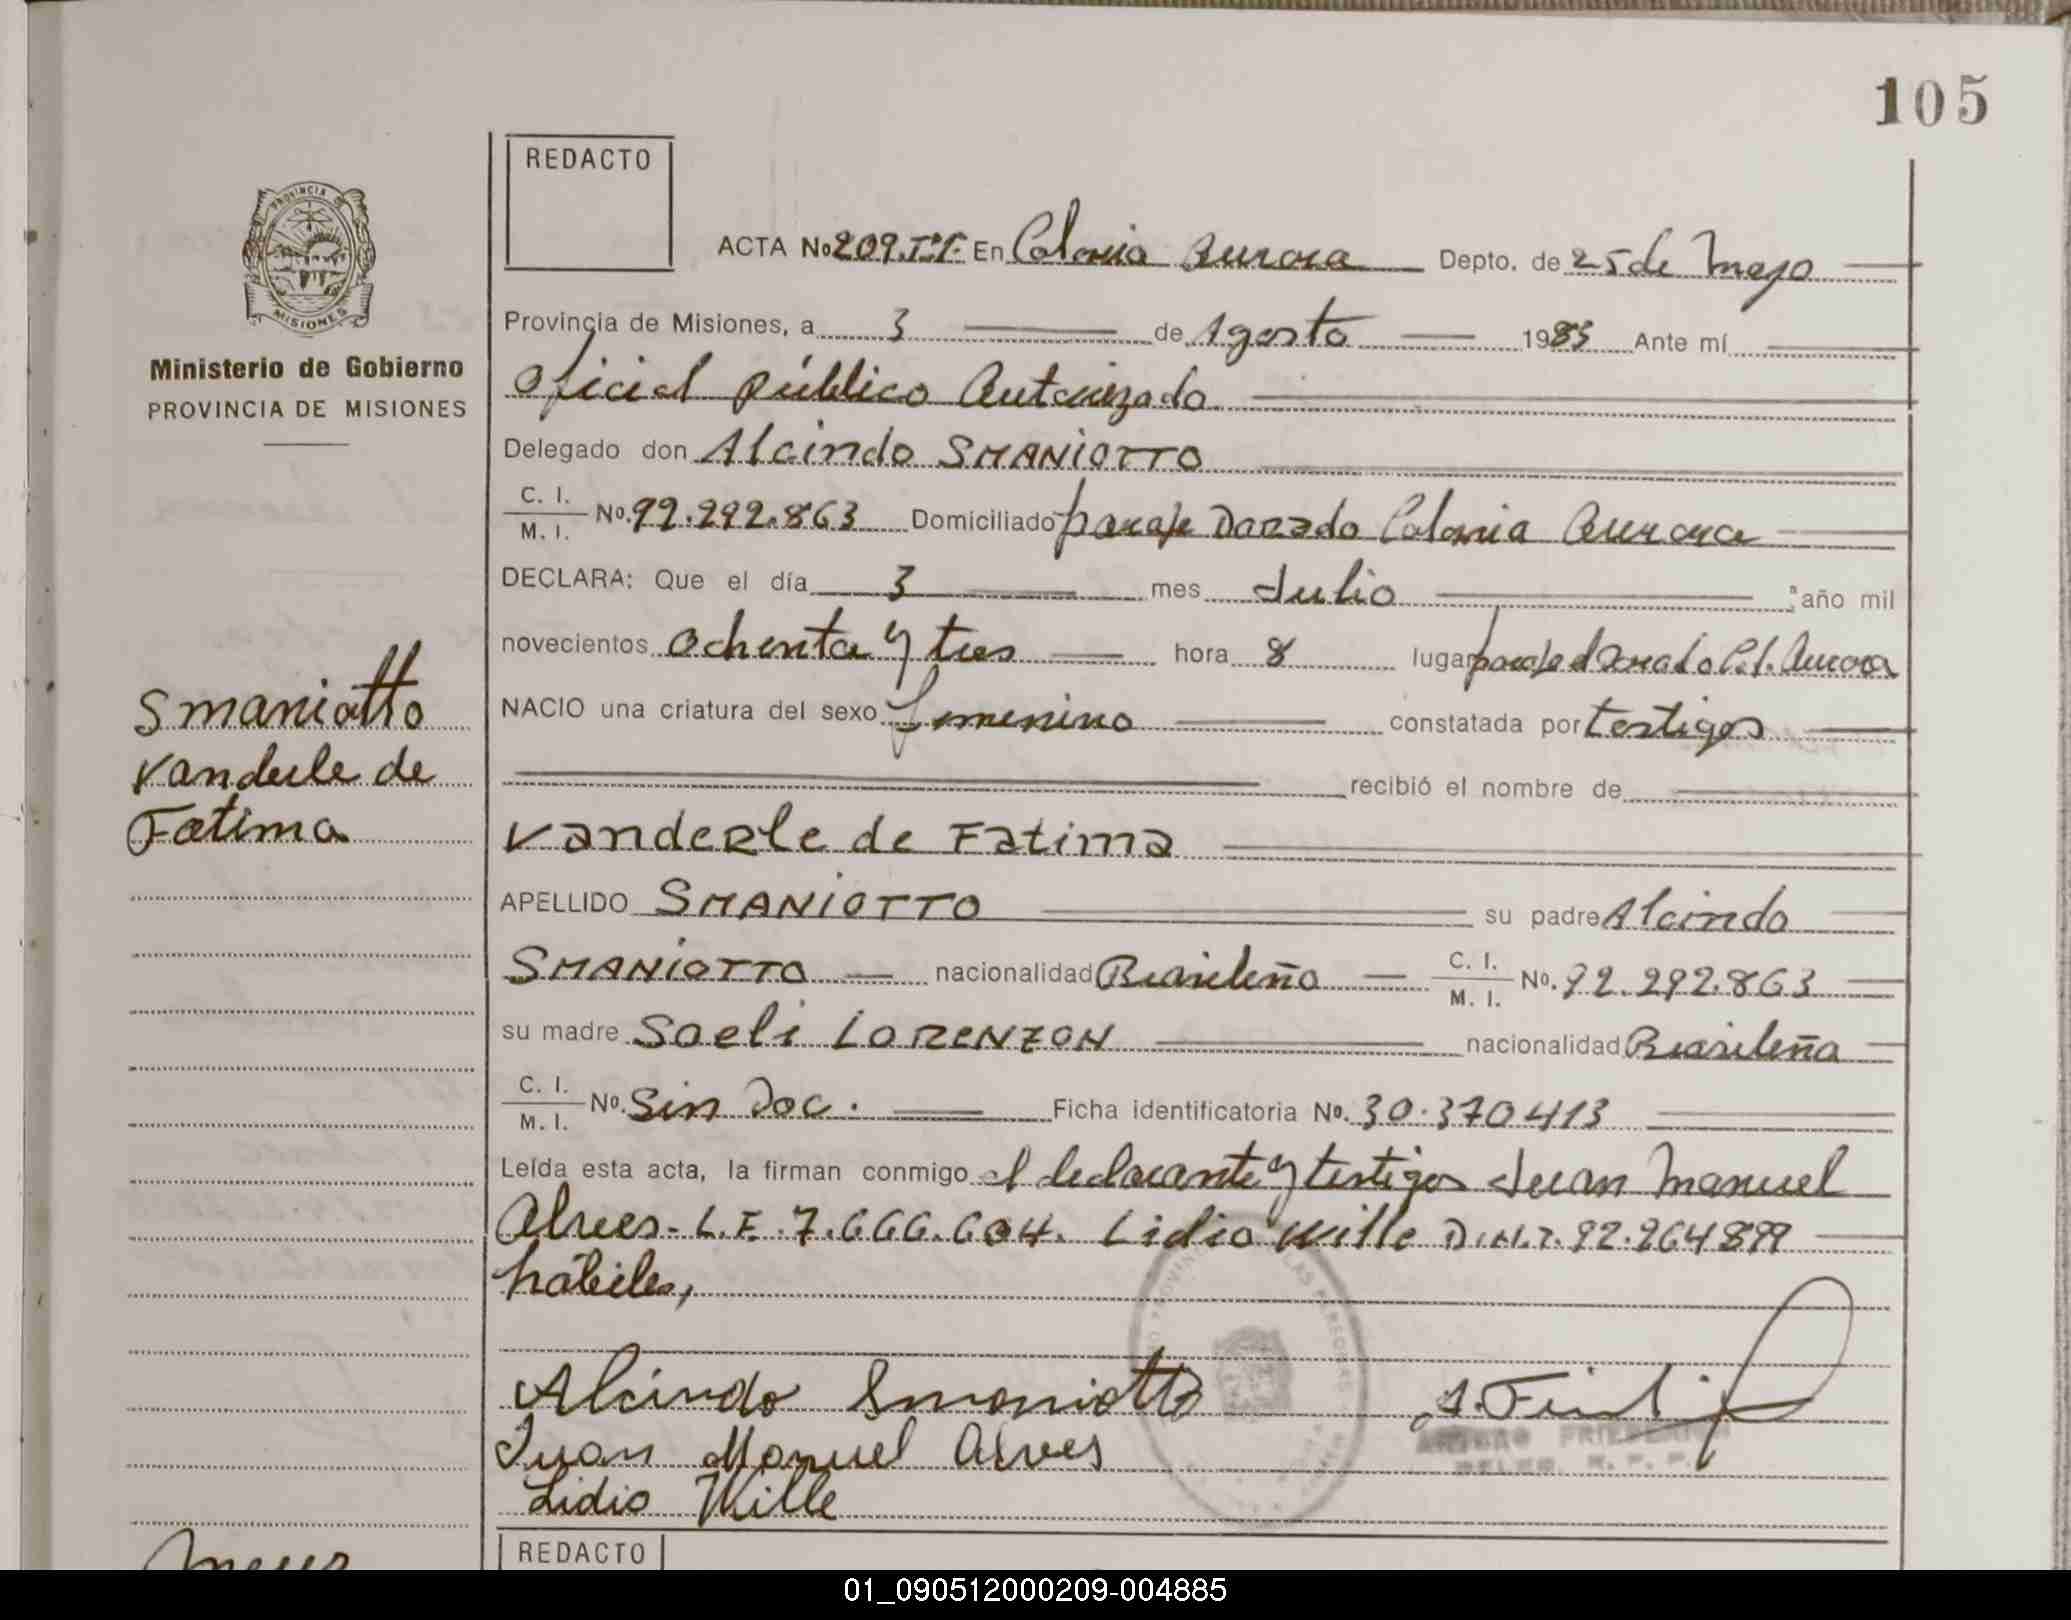 105
REDACTO
ACTA No 209.T°1°. En Colonia Aurora Depto. de 25 de Mayo
Provincia de Misiones, a 3 de Agosto 1983 Ante mí
Oficial Público Autorizado
Ministerio de Gobierno
PROVINCIA DE MISIONES
Delegado don Alcindo SMANIOTTO
C. I.
M. I. No. 92.292.863 Domiciliado paraje Dorado Colonia Aurora
DECLARA: Que el día 3 mes Julio año mil
novecientos ochenta y tres hora 8 lugar paraje el Dorado Col. Aurora
Smaniotto
Vanderle de
Fatima
NACIO una criatura del sexo femenino constatada por testigos
recibió el nombre de
Vanderle de Fatima
APELLIDO SMANIOTTO su padre Alcindo
SMANIOTTO nacionalidad Brasileño C. I. M. I. No. 92.292.863
su madre Soeli LORENZON nacionalidad Brasileña
C. I.
M. I. No. Sin Doc. Ficha identificatoria No. 30.370413
Leída esta acta, la firman conmigo el declarante y testigos Juan Manuel
Alves - L.E. 7.666.604. Lidio Wille D.N.I. 92.264899
hábiles,
Alcindo Smaniotto
Juan Manuel Alves
Lidio Wille
ARTURO FRIEDERICH
REDACTO
01_090512000209-004885